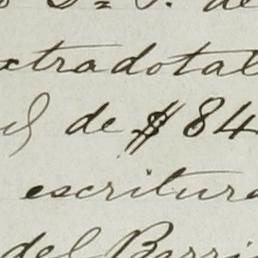 Da S. de
xtradotal
l de $ 84
escritura
del Barri